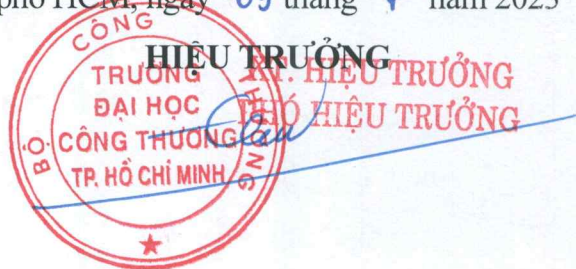 phố HCM, ngày 09 tháng 9 năm 2025
HIỆU TRƯỞNG
KT. HIỆU TRƯỞNG
PHÓ HIỆU TRƯỞNG
BỘ CÔNG THƯƠNG
TRƯỜNG
ĐẠI HỌC
CÔNG THƯƠNG
TP. HỒ CHÍ MINH